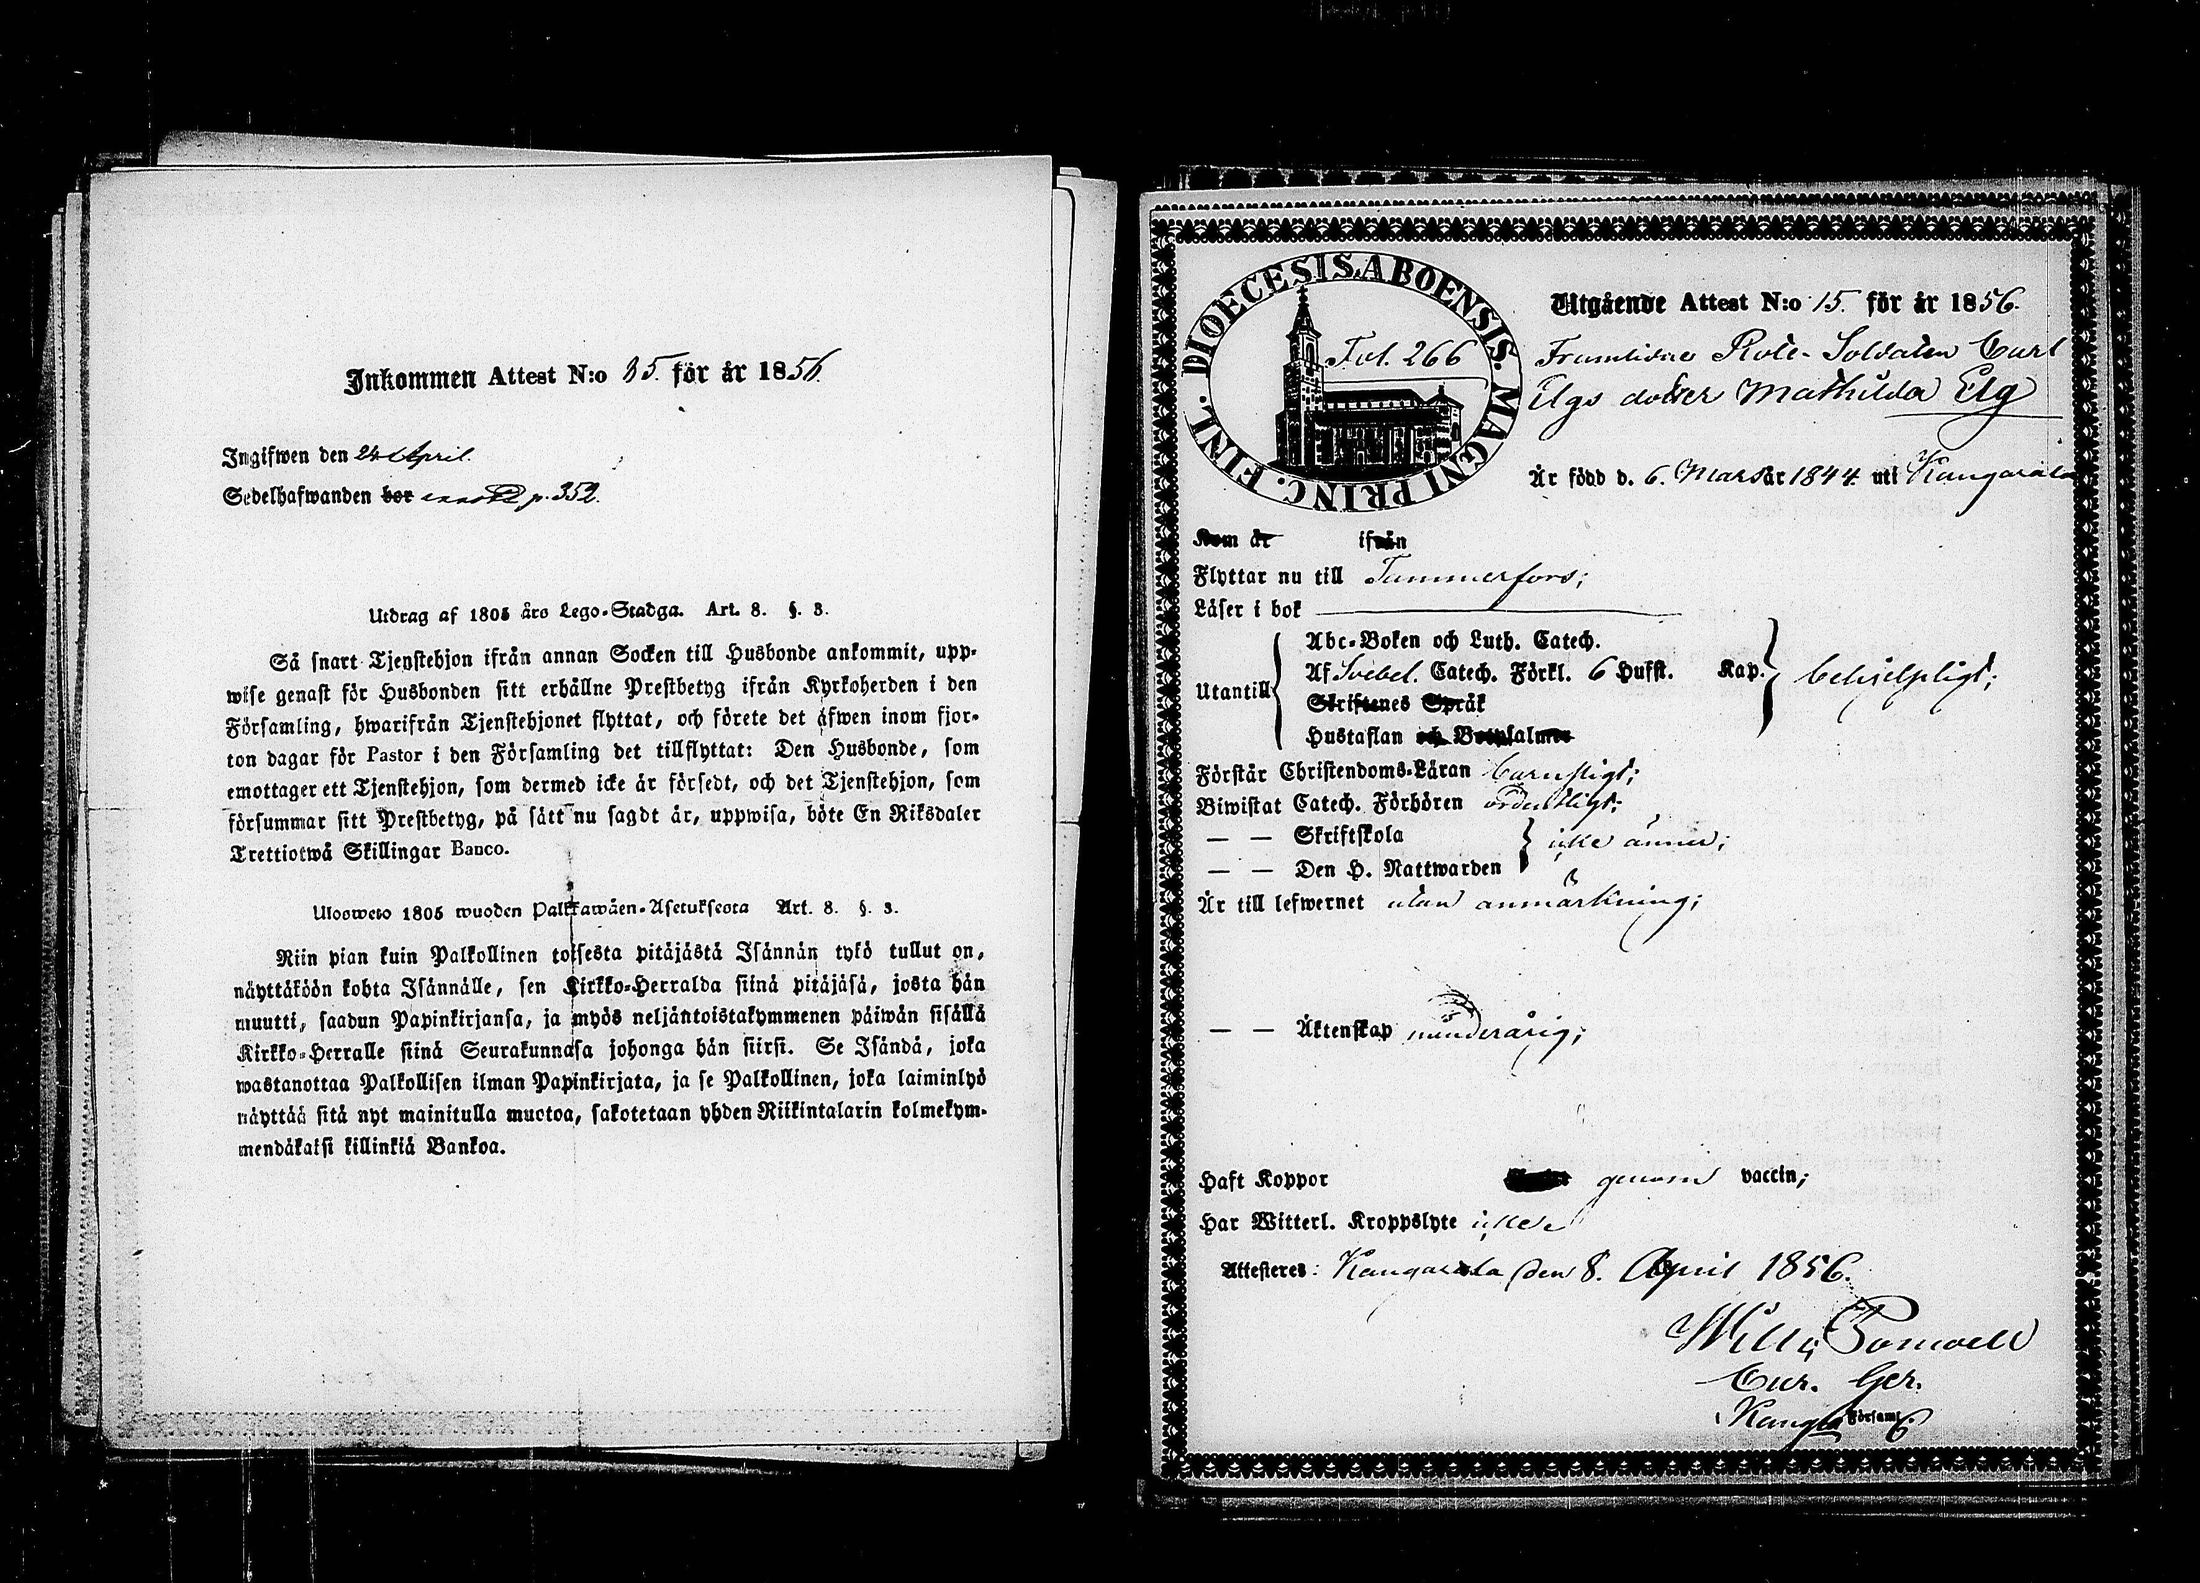 Inkommen Attest N:o 35. för år 1856.
Ingifwen den 24 April.
Sedelhafwanden bor p. 352.
Utdrag af 1805 års Lego-Stadga. Art. 8. §. 3.
Så snart Tjenstehjon ifrån annan Socken till Husbonde ankommit, upp-
wise genast för Husbonden sitt erhållne Prestbetyg ifrån Kyrkoherden i den
Församling, hwarifrån Tjenstehjonet flyttat, och förete det äfwen inom fjor-
ton dagar för Pastor i den Församling det tillflyttat: Den Husbonde, som
emottager ett Tjenstehjon, som dermed icke är försedt, och det Tjenstehjon, som
försummar sitt Prestbetyg, på sätt nu sagdt är, uppwisa, böte En Riksdaler
Trettiotwå Skillingar Banco.
Ulosweto 1805 wuoden Palkkawäen-Asetuksesta Art. 8. §. 3.
Niin pian kuin Palkollinen toisesta pitäjästä Isännän tykö tullut on,
näyttäköön kohta Isännälle, sen Kirkko-Herralda siinä pitäjäsä, josta hän
muutti, saadun Papinkirjansa, ja myös neljäntoistakymmenen päiwän sisällä
Kirkko-Herralle siinä Seurakunnasa johonga hän siirsi. Se Isändä, joka
wastanottaa Palkollisen ilman Papinkirjata, ja se Palkollinen, joka laiminlyö
näyttää sitä nyt mainitulla muotoa, sakotetaan yhden Riikintalarin kolmekym-
mendäkaksi killinkiä Bankoa.
DIOECESIS ABOENSIS. MAGNI PRINC. FINL.
Fol. 266
Utgående Attest N:o 15. för år 1856.
Framlidne Rote-Soldaten Carl
Elgs dotter Mathilda Elg
Är född d. 6. Mars år 1844 uti Kangasala
Kom år ifrån
Flyttar nu till Tammerfors;
Läser i bok
Utantill
Abc-Boken och Luth. Catech.
Af Svebel. Catech. Förkl. 6 Hufst. Kap. behjelpligt;
Skriftenes Språk
Hustaflan och Botpsalmer
Förstår Christendoms-Läran barnsligt;
Biwistat Catech. Förhören ordentligt;
— — Skriftskola
icke ännu;
— — Den H. Nattwarden
Är till lefwernet utan anmärkning;
— — Äktenskap minderårig;
Haft Koppor genom vaccin;
Har Witterl. Kroppslyte icke
Attesteres: Kangasala den 8. April 1856.
Cur. Ger.
Församl.